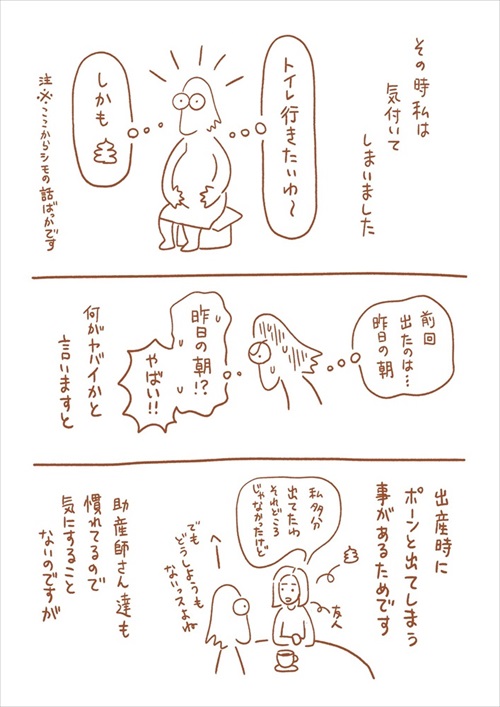 その時私は
気付いて
しまいました
トイレ行きたいわ〜
しかも
注※ここからシモの話ばっかです
前回
出たのは…
昨日の朝
昨日の朝!?
やばい!!
何がヤバイかと
言いますと
出産時に
ポーンと出てしまう
事があるためです
友人
私多分
出てたわ
それどころ
じゃなかったけど
へー
でも
どうしようも
ないっスよね
助産師さん達も
慣れてるので
気にすること
ないのですが